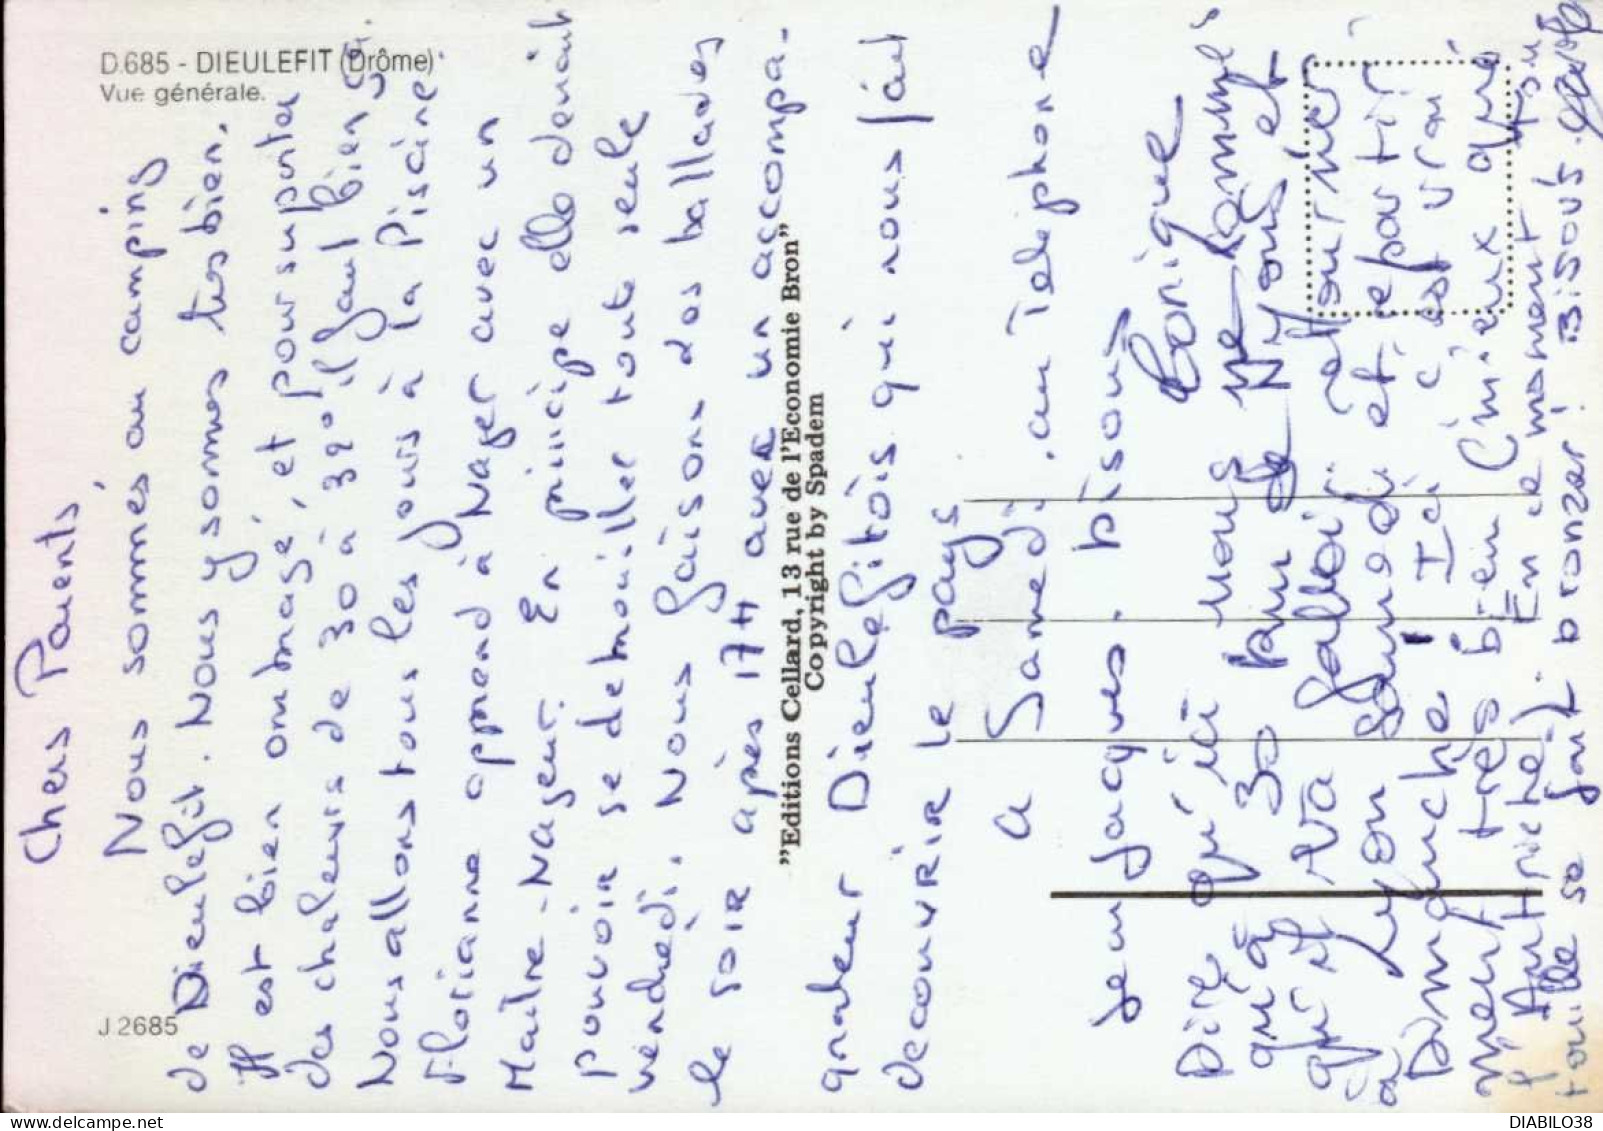 D.685 - DIEULEFIT (Drôme)
Vue générale.
J 2685
"Editions Cellard, 13 rue de l'Economie Bron"
Copyright by Spadem
Chers Parents,
Nous sommes au camping
de Dieulefit. Nous y sommes très bien.
Il est bien ombragé, et pour supporter
des chaleurs de 30 à 39° il faut bien ça.
Nous allons tous les jours à la Piscine
Floriane apprend à Nager avec un
Maitre-Nageur. En principe elle devrait
pouvoir se debrouiller tout seule
vendredi. Nous faisons des ballades
le soir après 17H avec un accompa-
gnateur Dieulefitois qui nous fait
decouvrir le pays
a Samedi. au Telephone
Jean Jacques. bisous
Dire qu'ici nous ne sommes
qu'à 30 km de Nyons et
qu'il va falloir retourner
à Lyon Samedi et repartir
Dimanche! Ici c'est vrai
ment très bien (mieux que
l'Autriche). En ce moment tout
le se fait bronzer! Bisous.